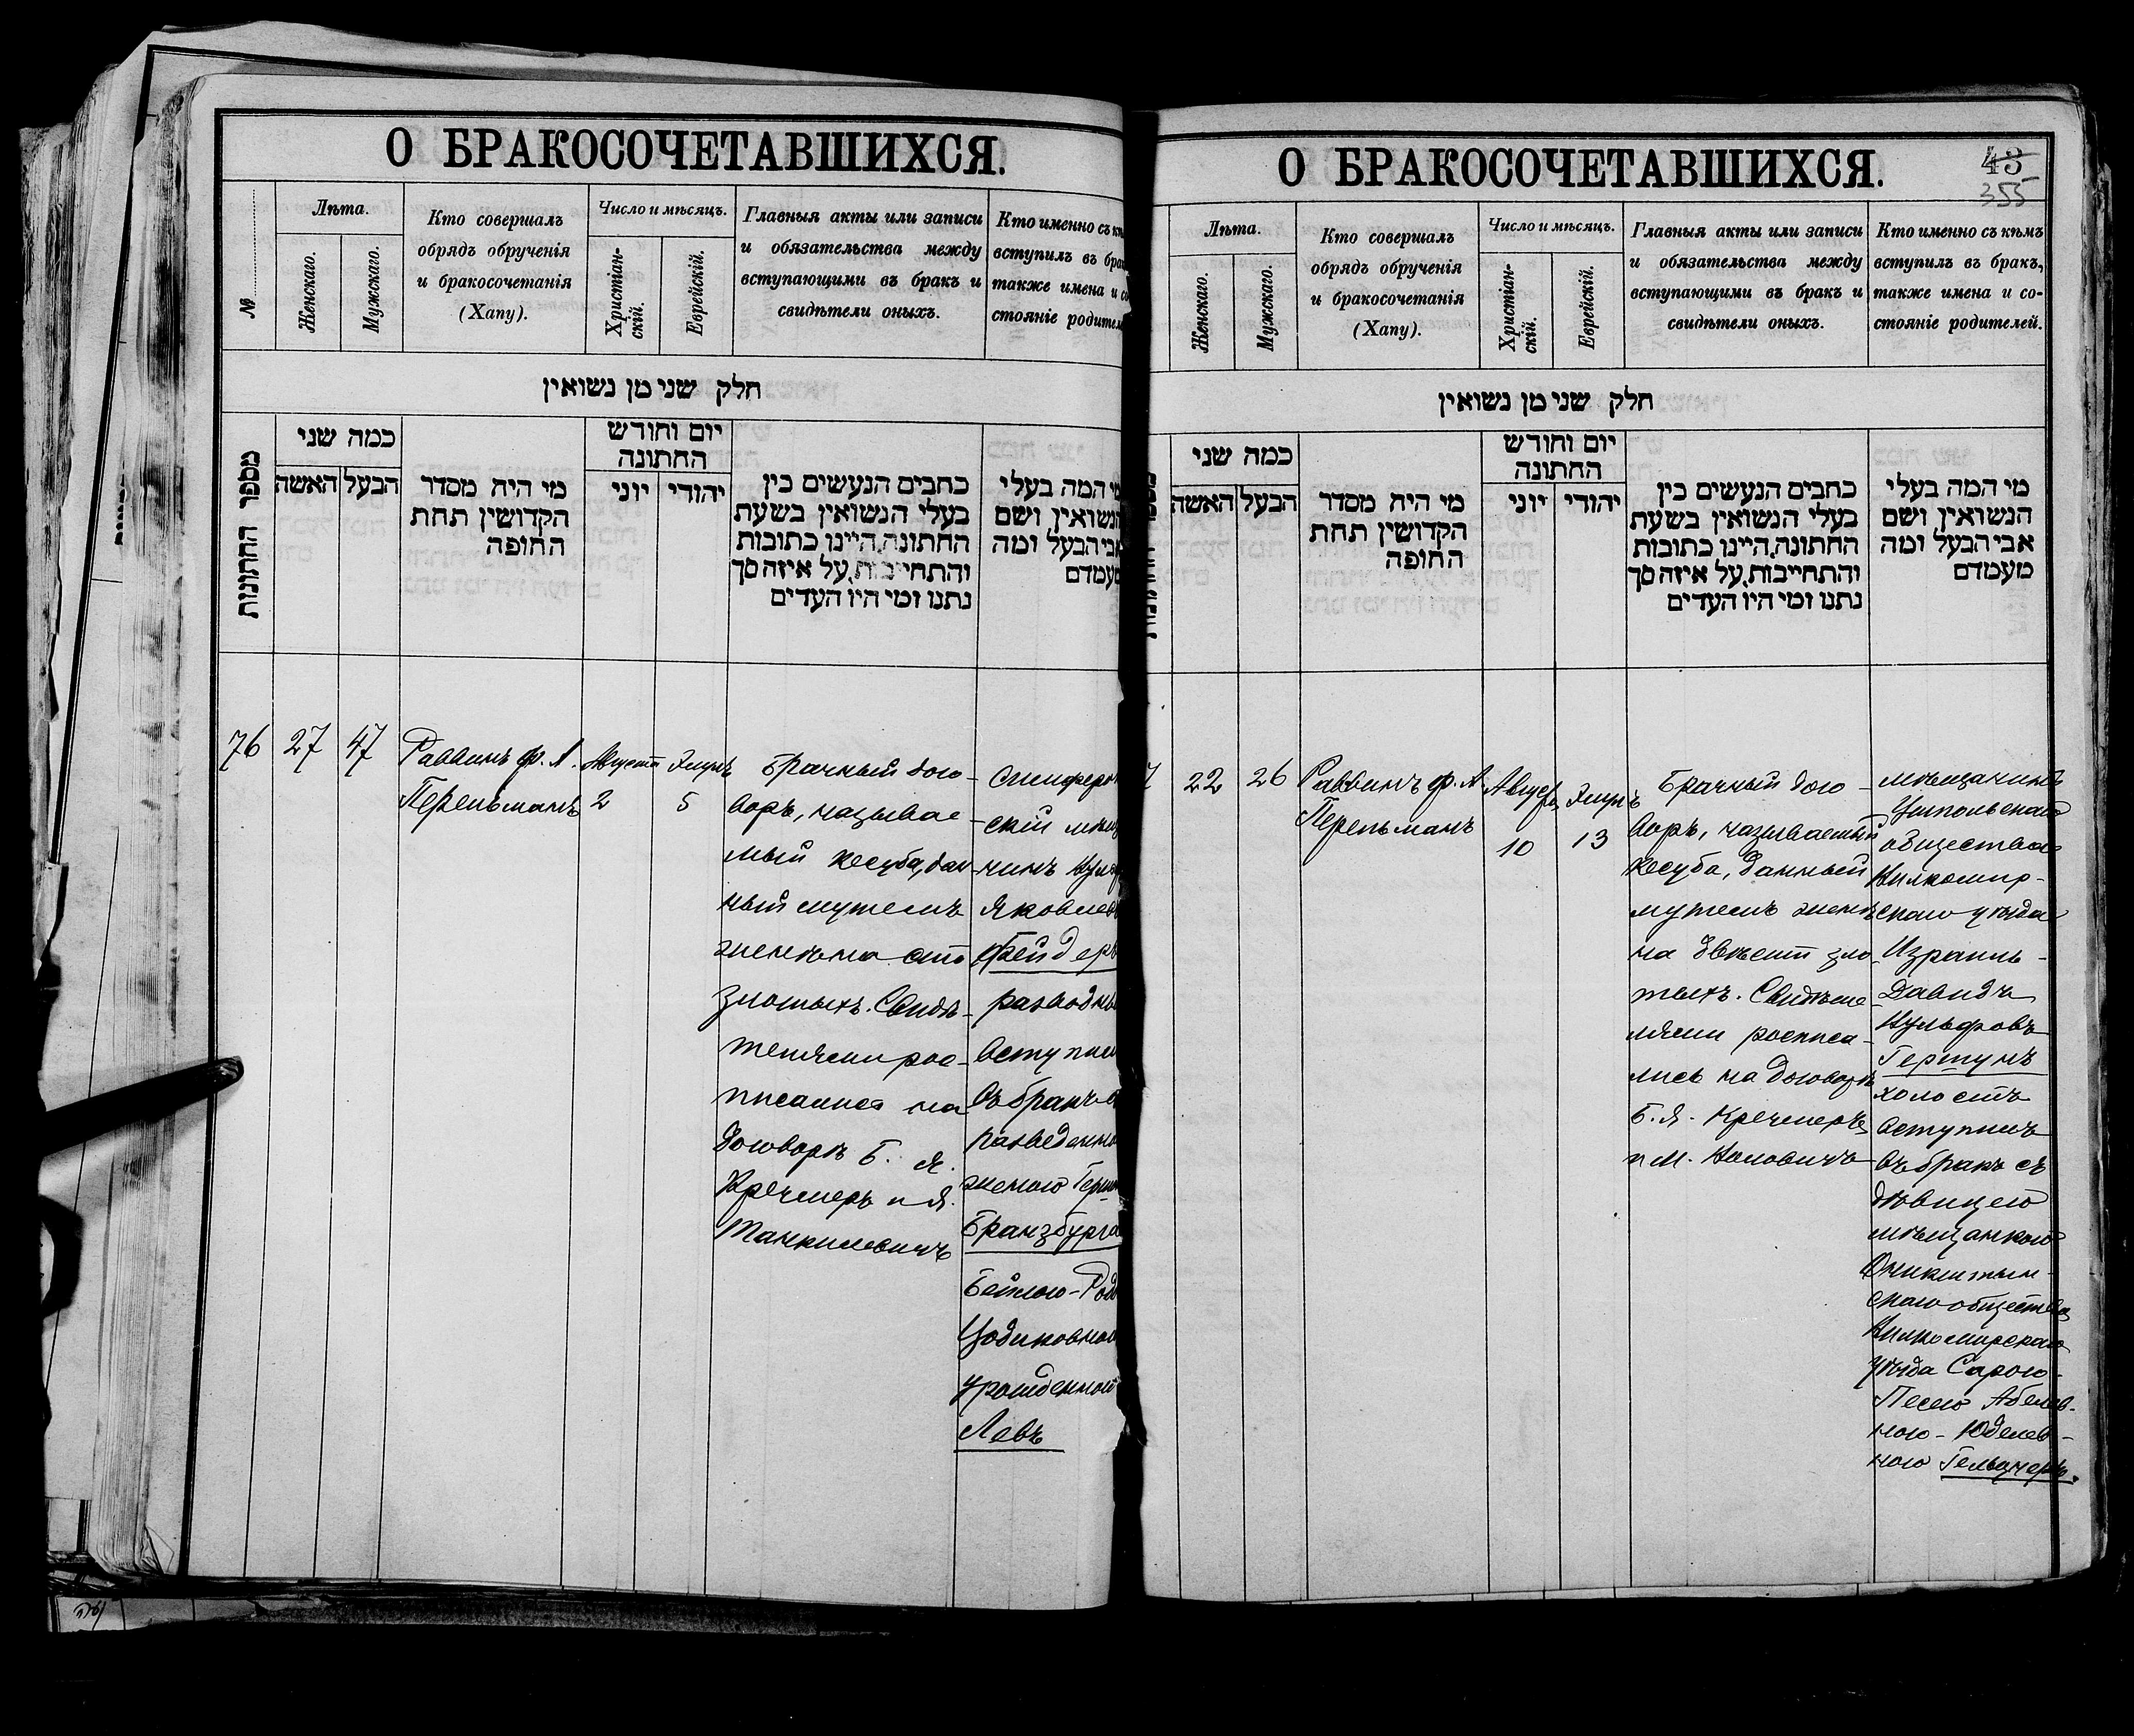 О БРАКОСОЧЕТАВШИХСЯ.
№
Лѣта.
Женскаго.
Мужскаго.
Кто совершалъ
обрядъ обрученія
и бракосочетанія
(Хапу).
Число и мѣсяцъ.
Христіан-
скій.
Еврейскій.
Главныя акты или записи
и обязательства между
вступающими въ бракъ и
свидѣтели оныхъ.
Кто именно съ
вступилъ въ
также имена и
стояніе
חלק שני מן נשואין
מספר החתונות
כמה שני
האשה
הבעל
מי היה מסדר
הקדושין תחת
החופה
יום וחודש
החתונה
יוני
יהודי
כתבים הנעשים בין
בעלי הנשואין בשעת
החתונה, היינו כתובות
והתחייבות, על איזה סך
נתנו ומי היו העדים
המה בעלי
ושם
ומה
76
27
47
Раввинъ ф. А.
Перельманъ
Августа
2
Элулъ
5
Брачный дого-
воръ, называе-
мый кесуба, дан-
ный мужемъ
женѣ на сто
злотыхъ. Свидѣ-
телями рос-
писались на
договорѣ Б. Я.
Кречмеръ и Я.
Манкилевичъ
скій
Фейдеръ
въ бракъ
женою
Бранзбурга
Бейлою-
Цодиковною
урожденной
Левъ
О БРАКОСОЧЕТАВШИХСЯ.
43
355
Лѣта.
Женскаго.
Мужскаго.
Кто совершалъ
обрядъ обрученія
и бракосочетанія
(Хапу).
Число и мѣсяцъ.
Христіан-
скій.
Еврейскій.
Главныя акты или записи
и обязательства между
вступающими въ бракъ и
свидѣтели оныхъ.
Кто именно съ кѣмъ
вступилъ въ бракъ,
также имена и со-
стояніе родителей.
חלק שני מן נשואין
כמה שני
האשה
הבעל
מי היה מסדר
הקדושין תחת
החופה
יום וחודש
החתונה
יוני
יהודי
כתבים הנעשים בין
בעלי הנשואין בשעת
החתונה, היינו כתובות
והתחייבות, על איזה סך
נתנו ומי היו העדים
מי המה בעלי
הנשואין, ושם
אבי הבעל ומה
מעמדם
22
26
Раввинъ ф. А.
Перельманъ
Августа
10
Элулъ
13
Брачный дого-
воръ, называемый
кесуба, данный
мужемъ женѣ
на двѣсти зло-
тыхъ. Свидѣте-
лями росписа-
лись на договорѣ
Б. Я. Кречмеръ
и М.
мѣщанинъ
Ушпольскаго
общества
Вилкомир-
скаго уѣзда
Израиль-
Давидъ
Вульфовъ
Гертунъ
холостъ
вступилъ
въ бракъ съ
дѣвицею
мѣщанкою
Оникштын-
скаго общества
Вилкомирскаго
уѣзда Сарою-
Песею Абелев-
ною-Юделев-
ною Гельцнеръ.